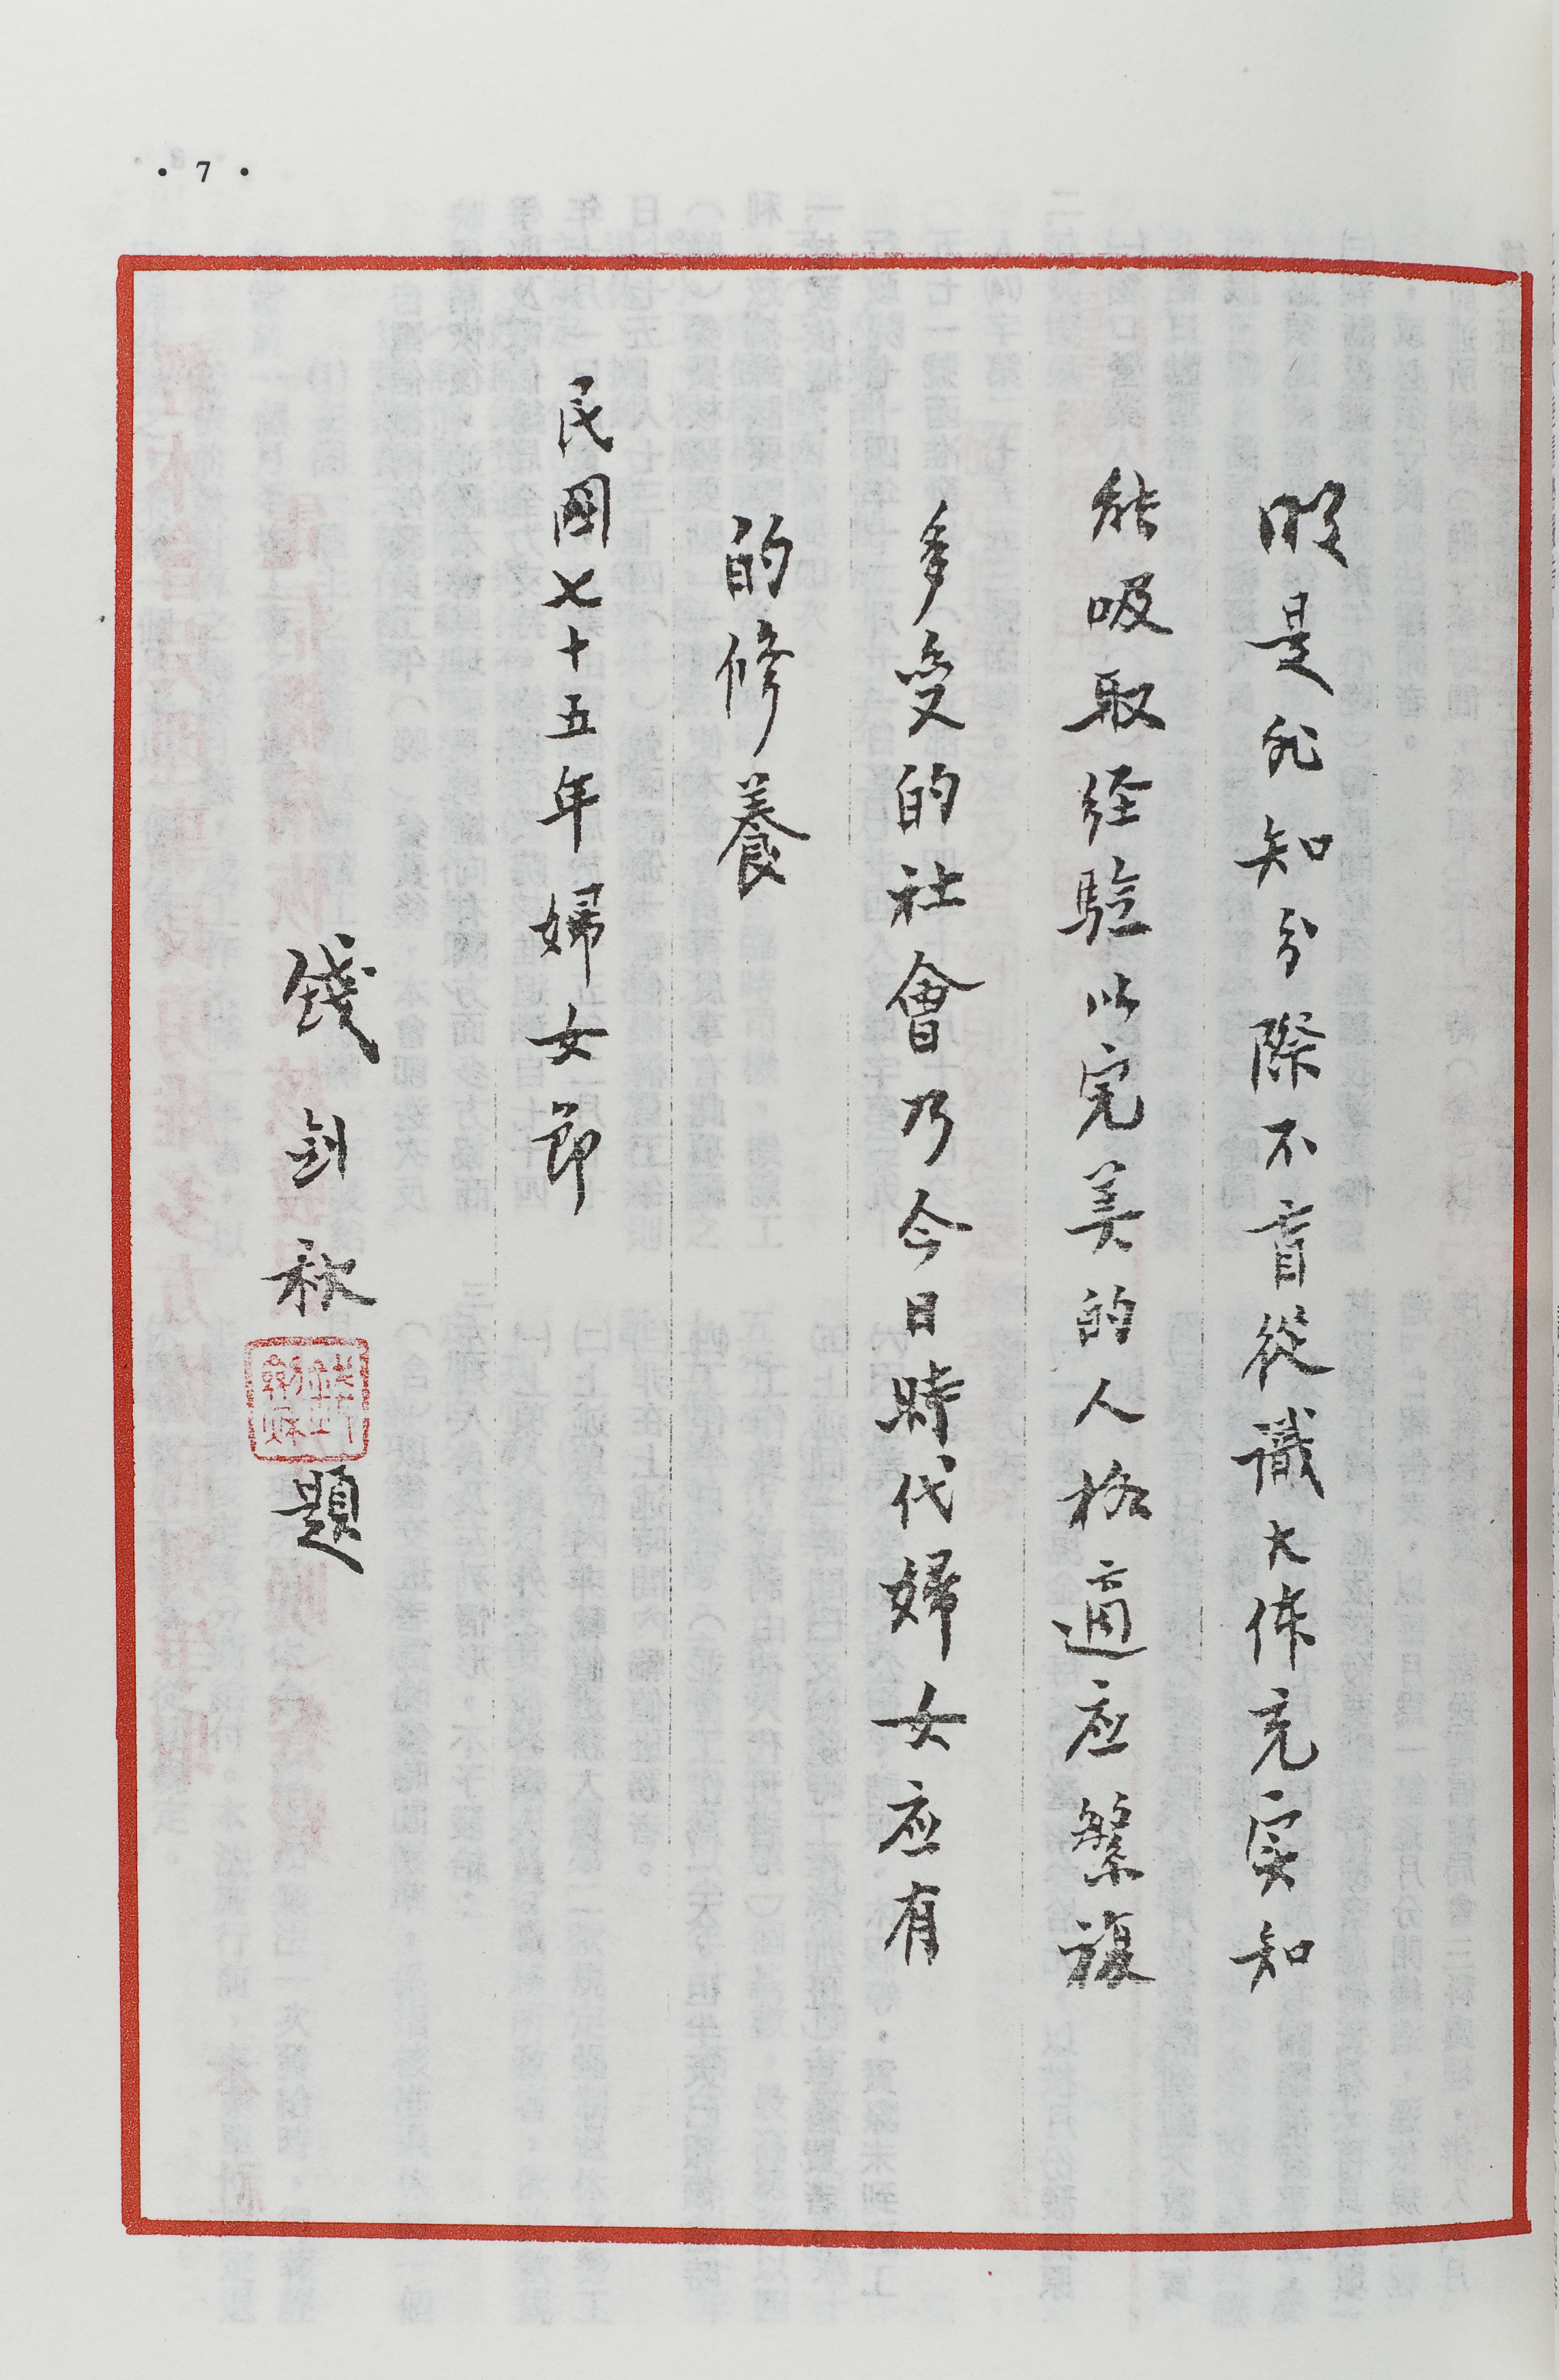 • 7 •
明是非知分際不盲從識大体充实知
能吸取经驗以完美的人格適应繁複
多变的社會乃今日時代婦女应有
的修養
民國七十五年婦女節
錢剑秋題